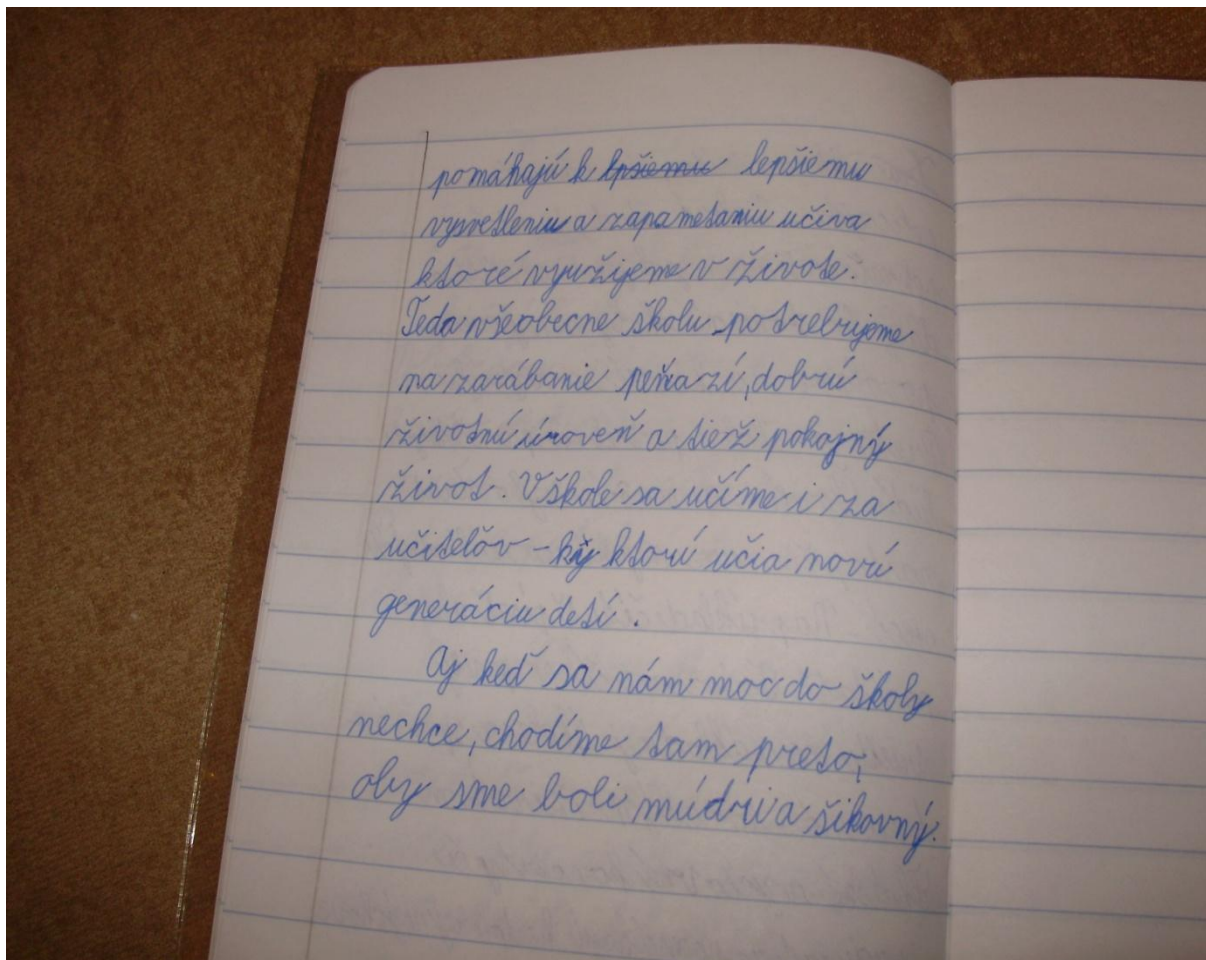 pomáhajú k lpšiemu lepšiemu
vysvetleniu a zapametaniu učiva
ktoré využijeme v živote.
Teda všeobecne školu potrebujeme
na zarábanie peňazí, dobrú
životnú úroveň a tiež pokojný
život. V škole sa učíme i za
učitelǒv - ký ktorú učia novú
generáciu detí.
Aj keď sa nám moc do školy
nechce, chodíme tam preto,
aby sme boli múdri a šikovný.